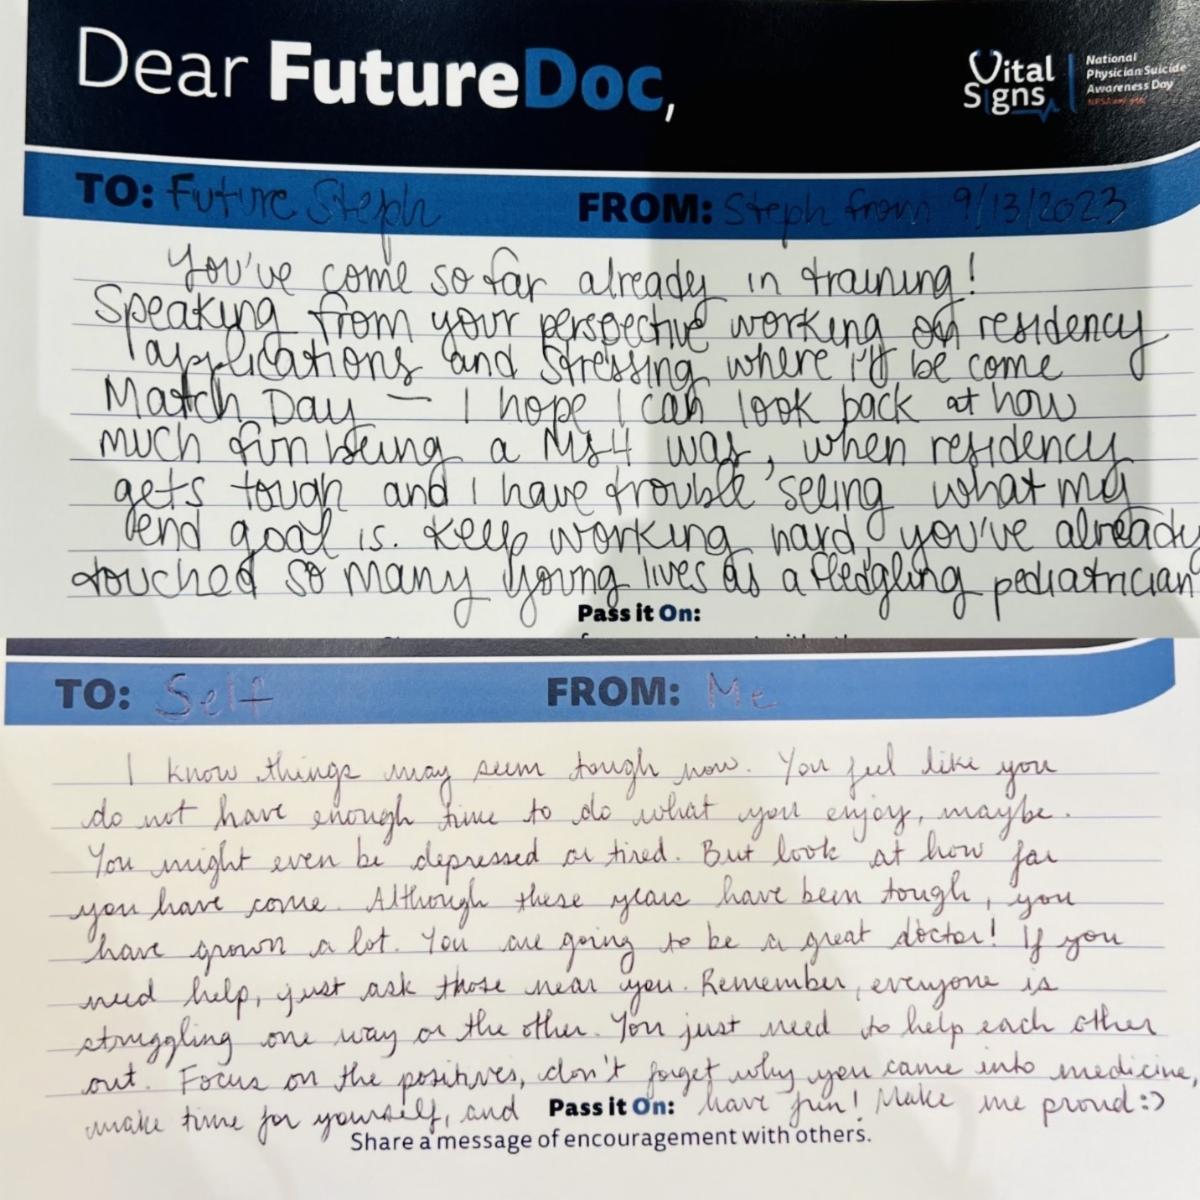 Dear FutureDoc,
Vital Signs
National
Physician Suicide
Awareness Day
TO: Future Steph FROM: Steph from 9/13/2023
You've come so far already in training!
Speaking from your perspective working on residency
applications and stressing where I'll be come
Match Day — I hope I can look back at how
much fun being a MS4 was, when residency
gets tough and I have trouble seeing what my
end goal is. Keep working hard you've already
touched so many young lives as a fledgling pediatrician
Pass it On:
TO: Self FROM: Me
I know things may seem tough now. You feel like you
do not have enough time to do what you enjoy, maybe.
You might even be depressed or tired. But look at how far
you have come. Although these years have been tough, you
have grown a lot. You are going to be a great doctor! If you
need help, just ask those near you. Remember, everyone is
struggling one way or the other. You just need to help each other
out. Focus on the positives, don't forget why you came into medicine,
make time for yourself, and Pass it On: have fun! Make me proud :)
Share a message of encouragement with others.